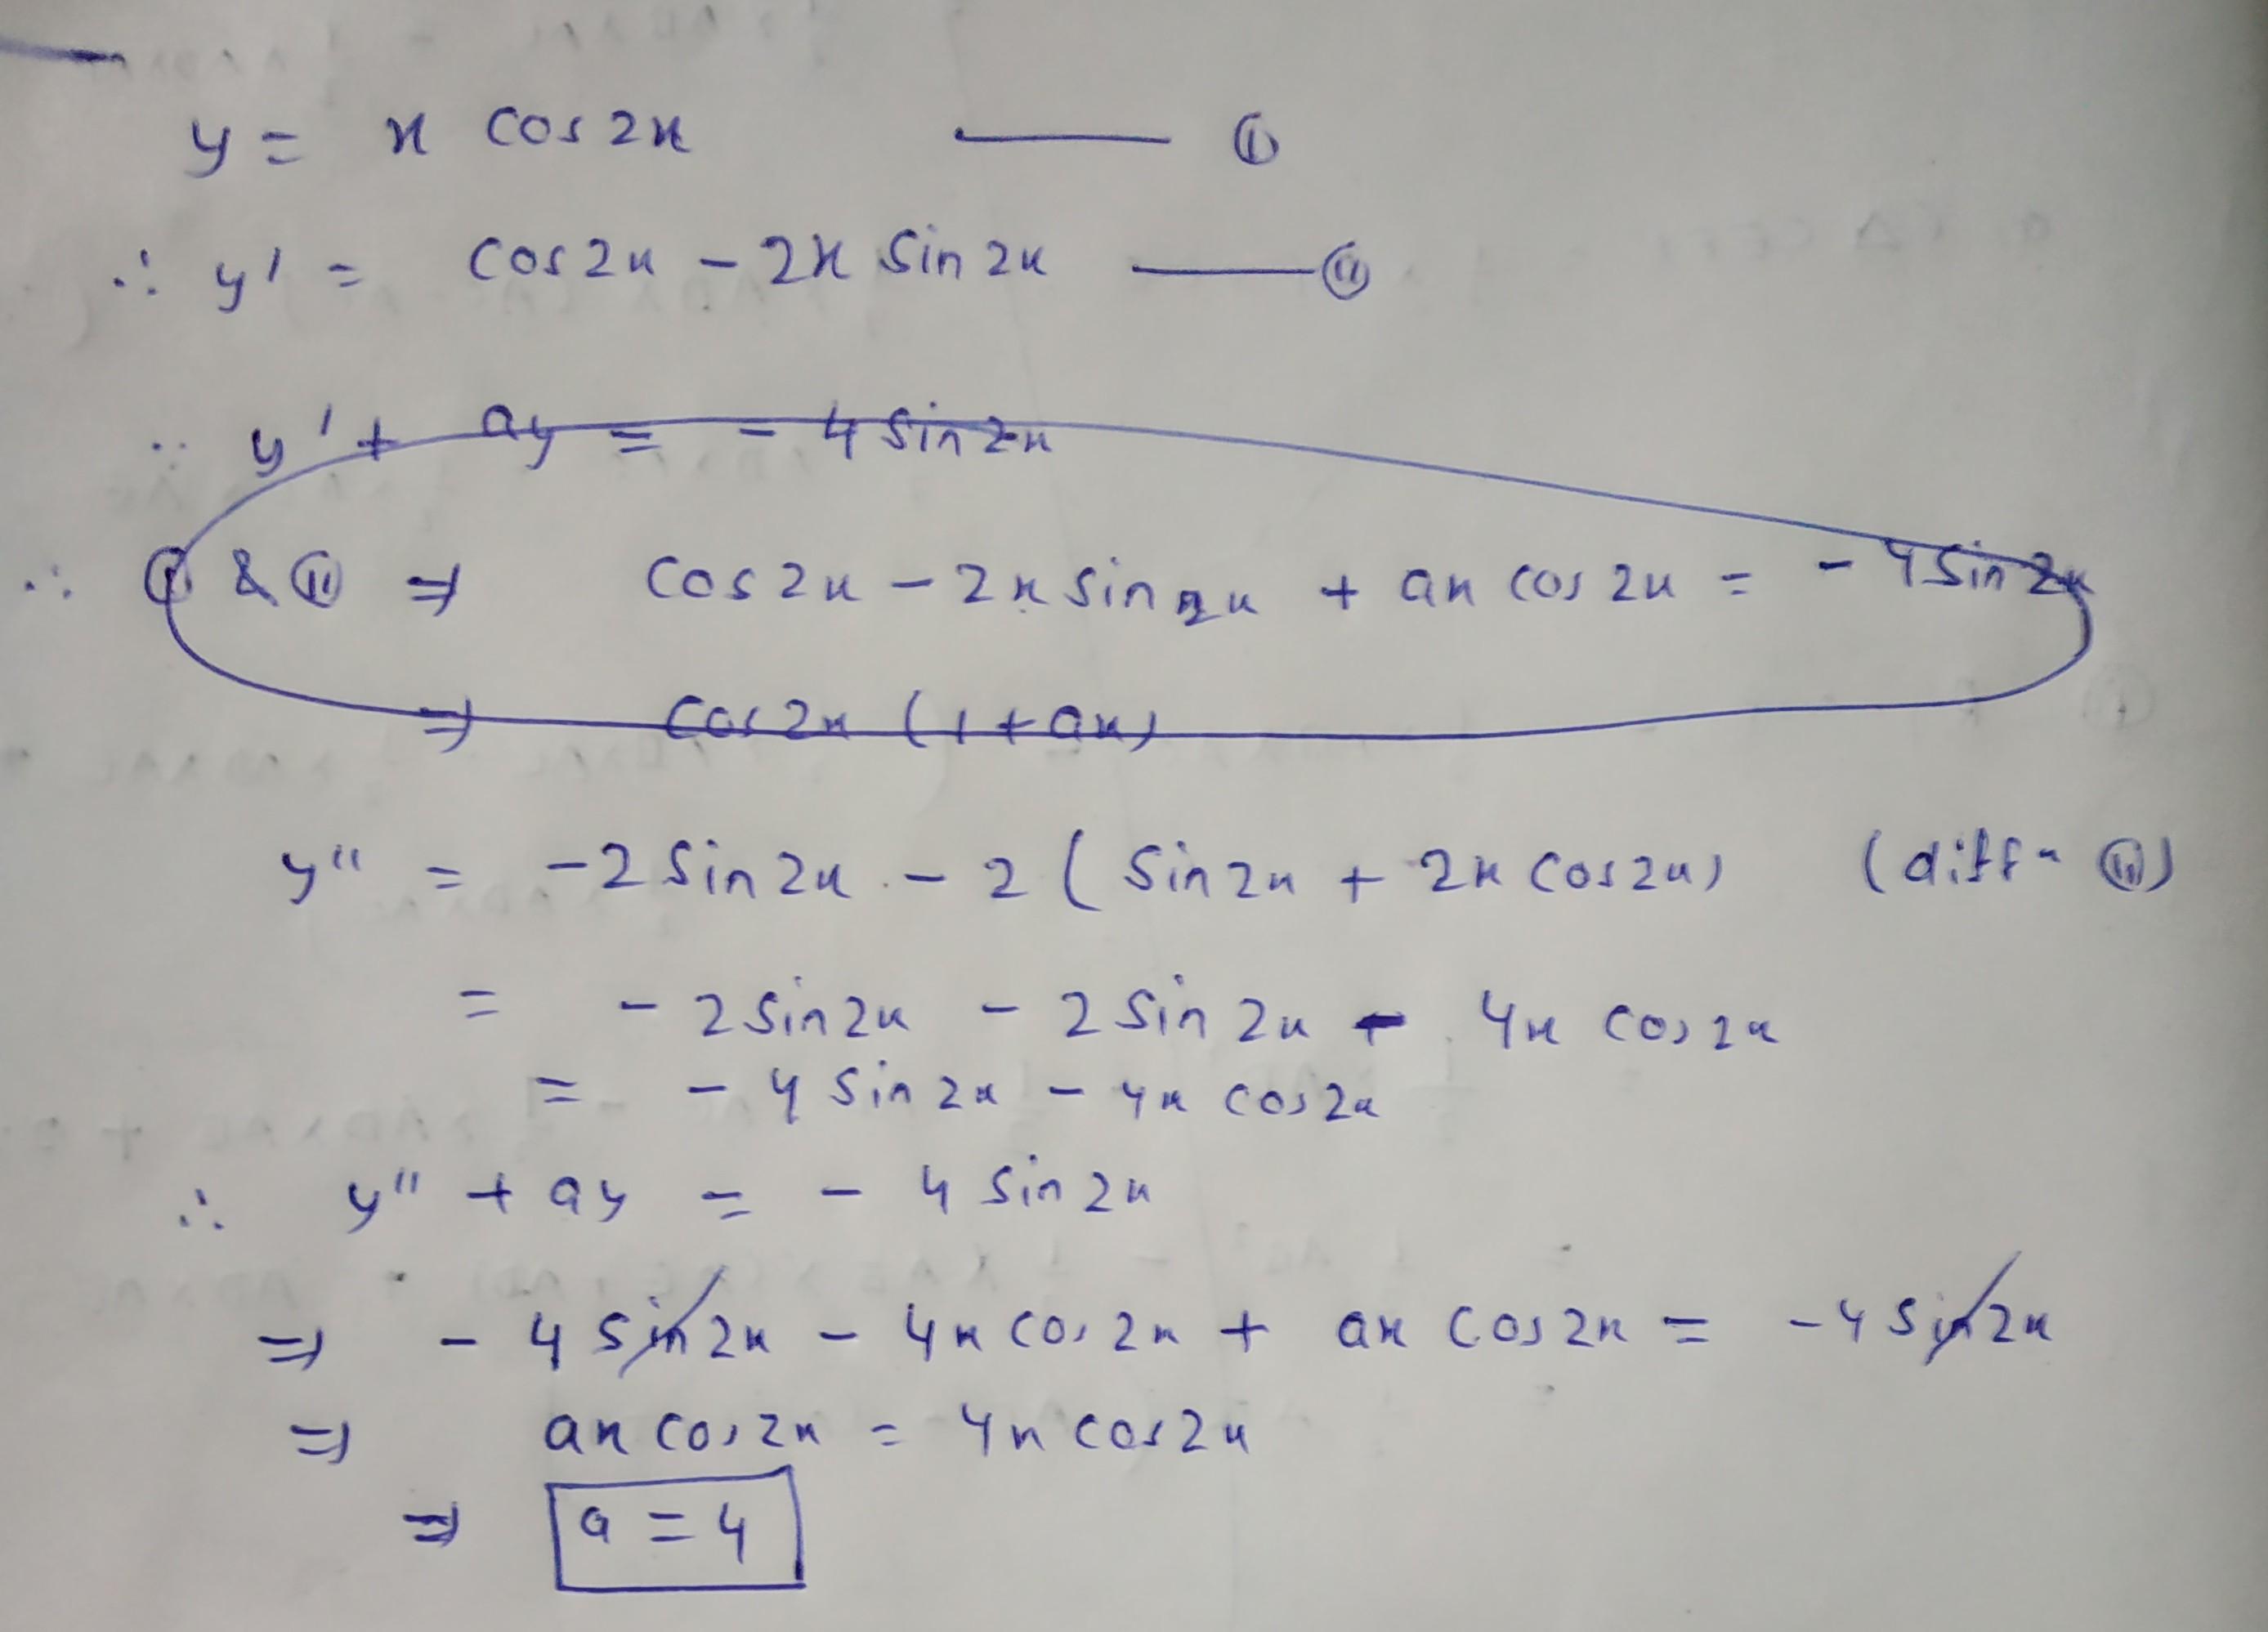 y = x cos 2x —— (i)
∴ y' = cos 2x - 2x sin 2x —— (ii)
∵ y' + ay = - 4 sin 2x
∴ (i) & (ii) ⇒ cos 2x - 2x sin 2x + ax cos 2x = - 4 sin 2x
⇒ cos 2x (1 + ax)
y'' = -2 sin 2x - 2 ( sin 2x + 2x cos 2x) (diffn (ii))
= - 2 sin 2x - 2 sin 2x - 4x cos 2x
= - 4 sin 2x - 4x cos 2x
∴ y'' + ay = - 4 sin 2x
⇒ - 4 sin 2x - 4x cos 2x + ax cos 2x = - 4 sin 2x
⇒ ax cos 2x = 4x cos 2x
⇒ a = 4